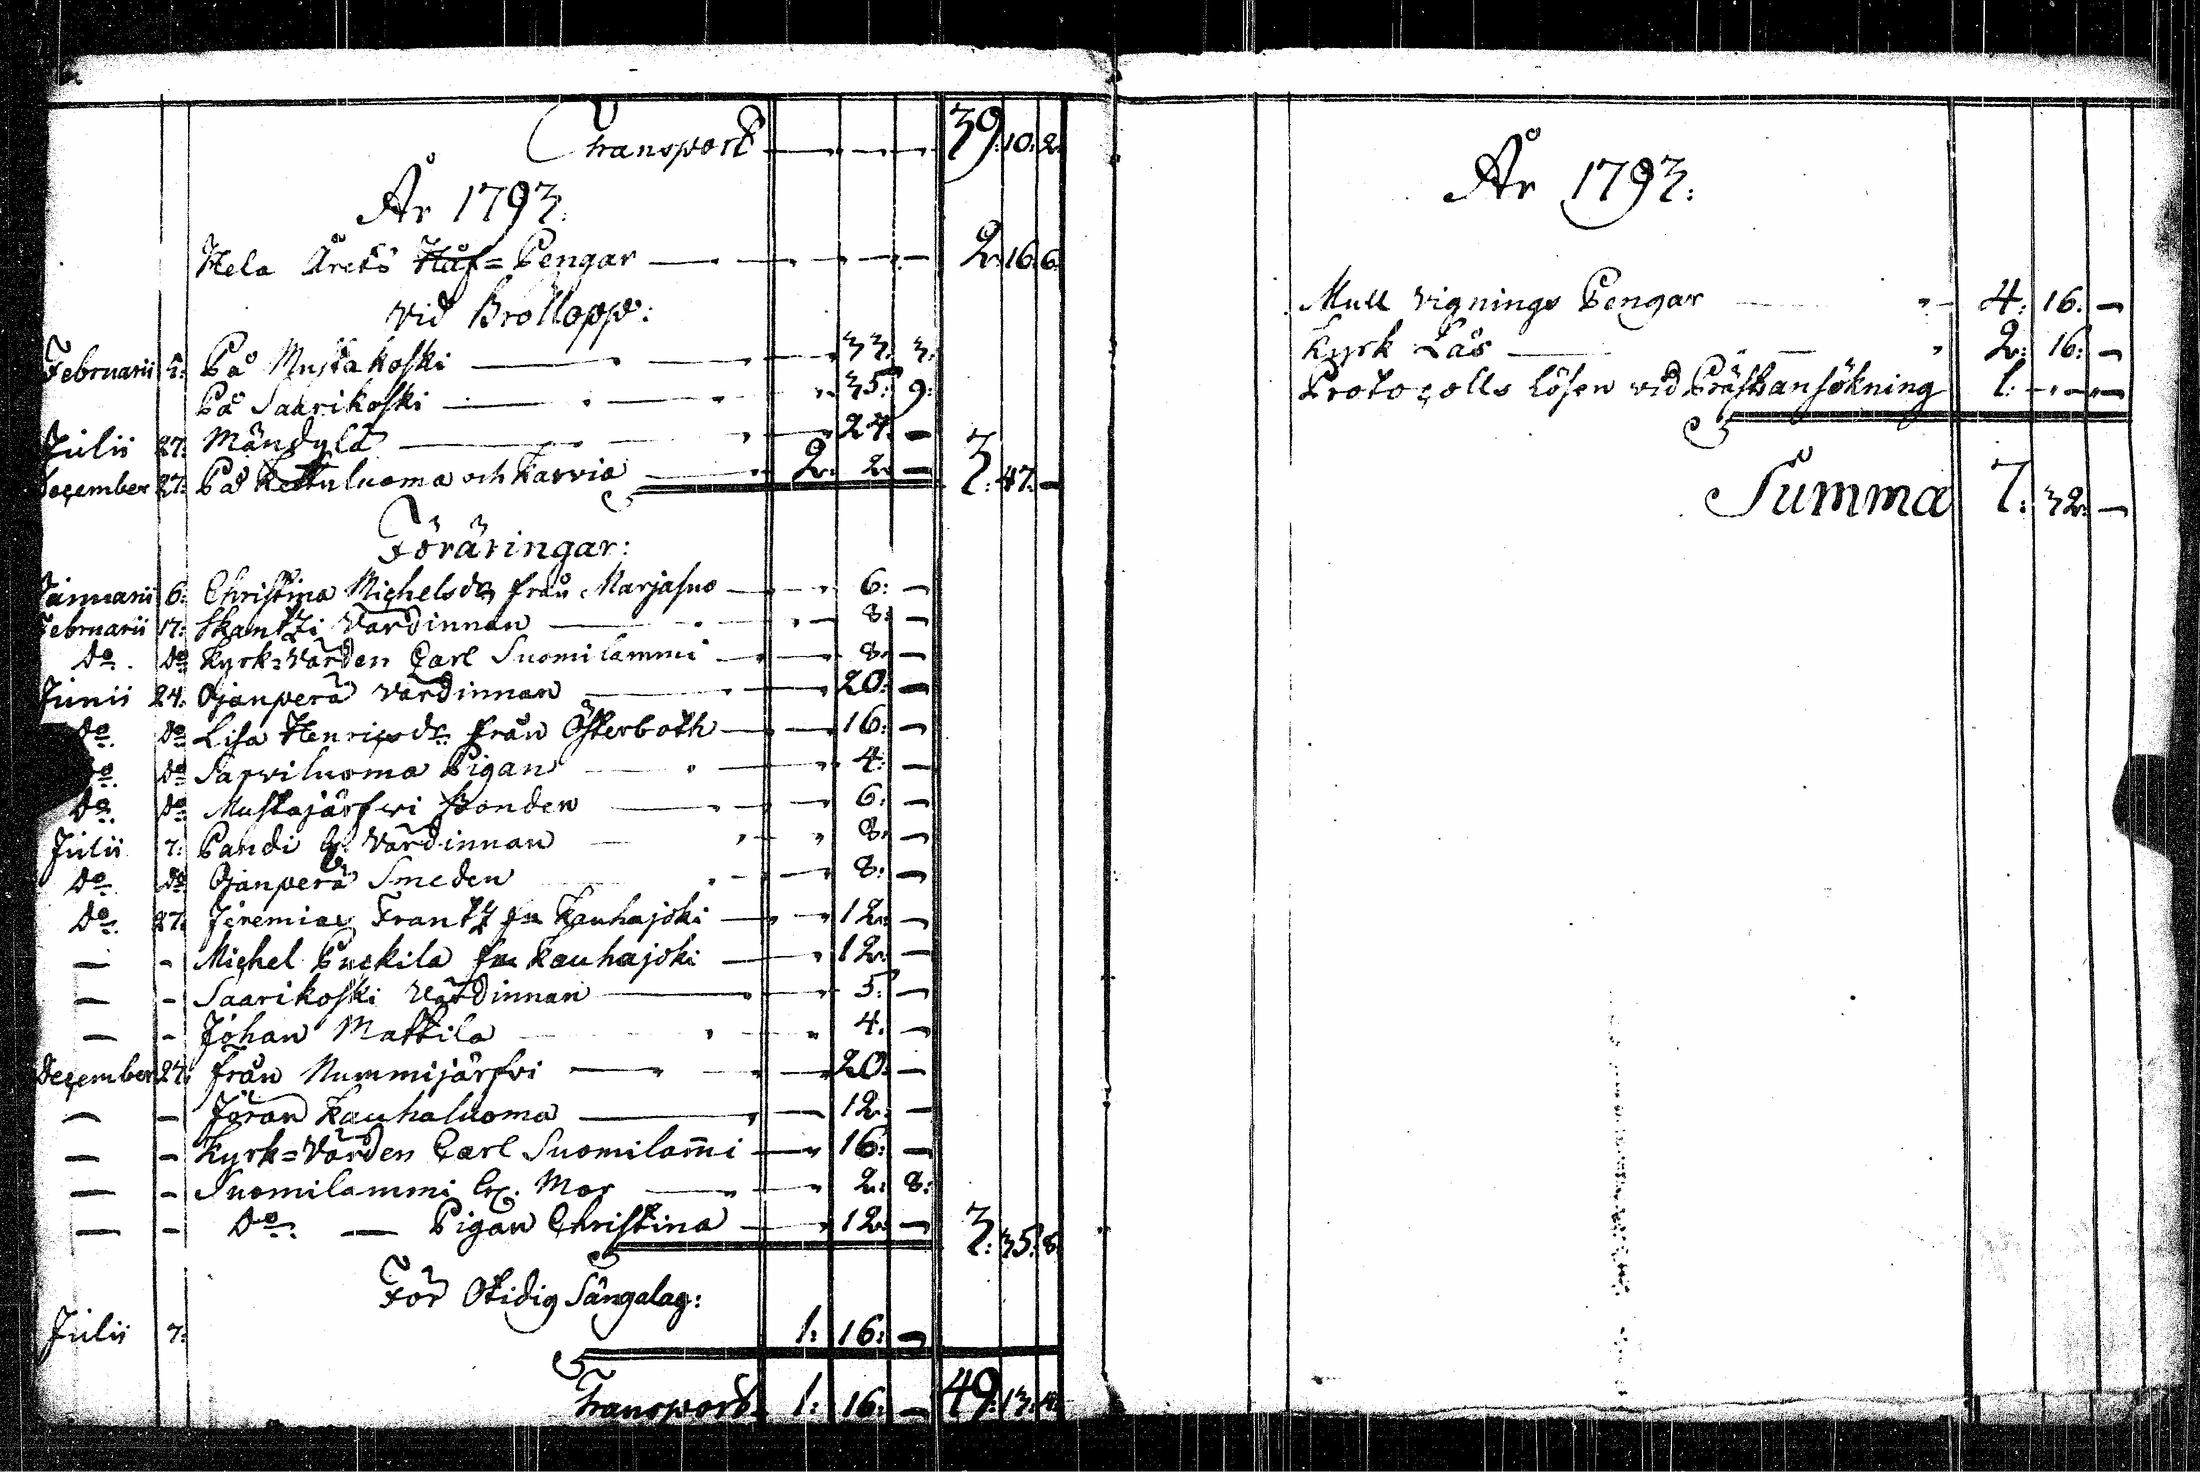 Transport — — — 39: 10: 2.
År 1793:
Hela Årets Håf=Pengar — — — 2: 16: 6
vid Brollopp:
Februarii 3: På Mustakoski — — 33: 3:
På Saarikoski — — 35: 9:
Julii 27: Mändylä — — 24: —
December 27: På Kettuluoma och Karvia — 2: 2: — 3: 47: —
Föräringar:
Januarii 6: Christina Michelsdr från Marjasuo — — 6: —
Februarii 17: Skantzi Värdinnan — — 8: —
do. do Kyrk=Värden Carl Suomilammi — — 8: —
Junii 24: Ojanperä värdinnan — — 20: —
do. do Lisa Henricsdr: från Österboth — — 16: —
do. do Sarviluoma Pigan — — 4: —
do. do Mustajärfwi Bonden — — 6: —
Julii 7: Pandi Värdinnan — 8: —
do. do Ojanperä Smeden — — 8: —
do. 27: Jeremias Frantz fr Kauhajoki — — 12: —
— - Michel Puckila fr Kauhajoki — 12: —
— - Saarikoski Värdinnan — — 5: —
— - Johan Mattila — 4: —
December 27: från Nummijärfvi — — 20: —
— — Jöran Kauhaluoma — — 12: —
— — Kyrk=Värden Carl Suomilam̄i — 16: —
— - Suomilammi Ex. Mor — — 2: 8:
— - do: — Pigan Christina — 12: — 3: 35: 8:
För Otidig Sängalag:
Julii 7: 1: 16: —
Transport 1: 16: — 49: 13: 4:
År 1793:
Mull vignings Pengar — 4: 16: —
Kyrk Lås — — 2: 16: —
Protocolls lösen vid Prästansökning 1: — —
Summa 7: 32: —